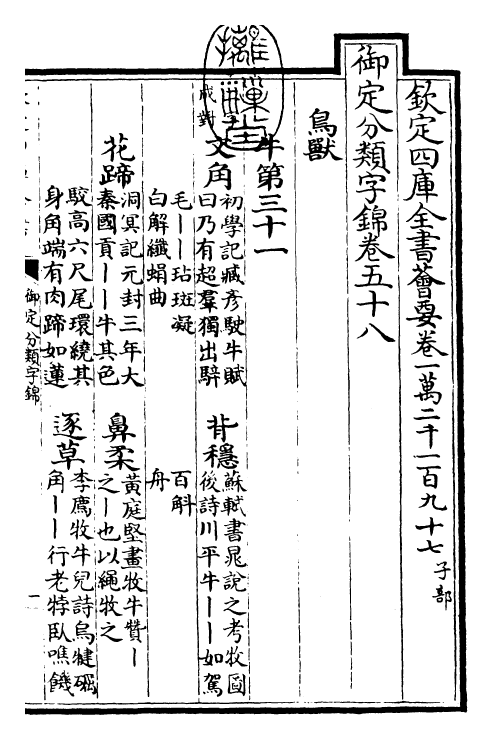 欽定四庫全書薈要卷一萬二千一百九十七 子部
御定分類字錦卷五十八
鳥獸
牛第三十一
成對
文角 初學記臧彦駛牛賦
曰乃有超羣獨出騂
毛一一玷斑凝
白解纖蝸曲
背穩 蘇軾書晁說之考牧圖
後詩川平牛一一如駕
百斛
舟
花蹄 洞冥記元封三年大
秦國貢一一牛其色
駮高六尺尾環繞其
身角端有肉蹄如蓮
鼻柔 黃庭堅畫牧牛贊一
之一也以繩牧之
逐草 李廌牧牛兒詩烏犍礪
角一一行老牸臥噍饑
御定分類字錦
一